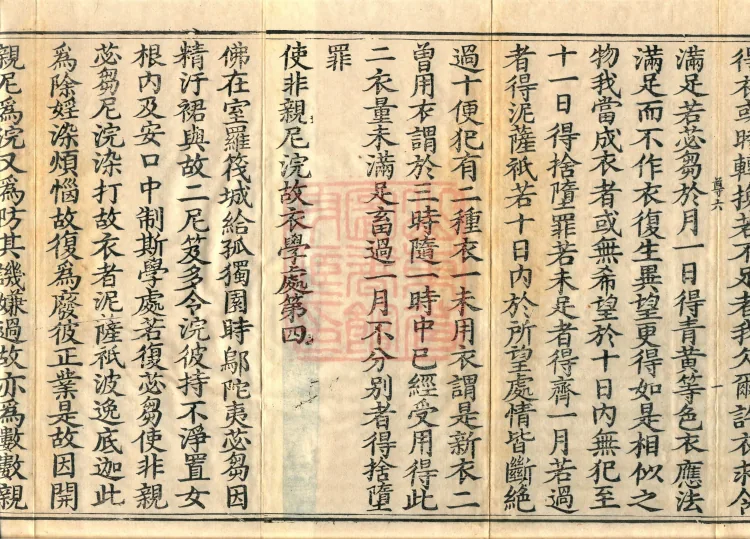 得衣或時不足者我
尊六
一
滿足若苾芻於月一日得青黃等色衣應法
滿足而不作衣復生異望更得如是相似之
物我當成衣者或無希望於十日內無犯至
十一日得捨墮罪若未足者得齊一月若過
者得泥薩祇若十日內於所望處情皆斷絕
過十便犯有二種衣一未用衣謂是新衣二
曾用衣謂於三時隨一時中已經受用得此
二衣量未滿足畜過一月不分別者得捨墮
罪
使非親尼浣故衣學處第四
佛在室羅筏城給孤獨園時鄔陀夷苾芻因
精汙裙與故二尼笈多令浣彼持不淨置女
根內及安口中制斯學處若復苾芻使非親
苾芻尼浣染打故衣者泥薩祇波逸底迦此
爲除婬染煩惱故復爲廢彼正業是故因開
親尼爲浣又爲防其譏嫌過故亦爲數數親